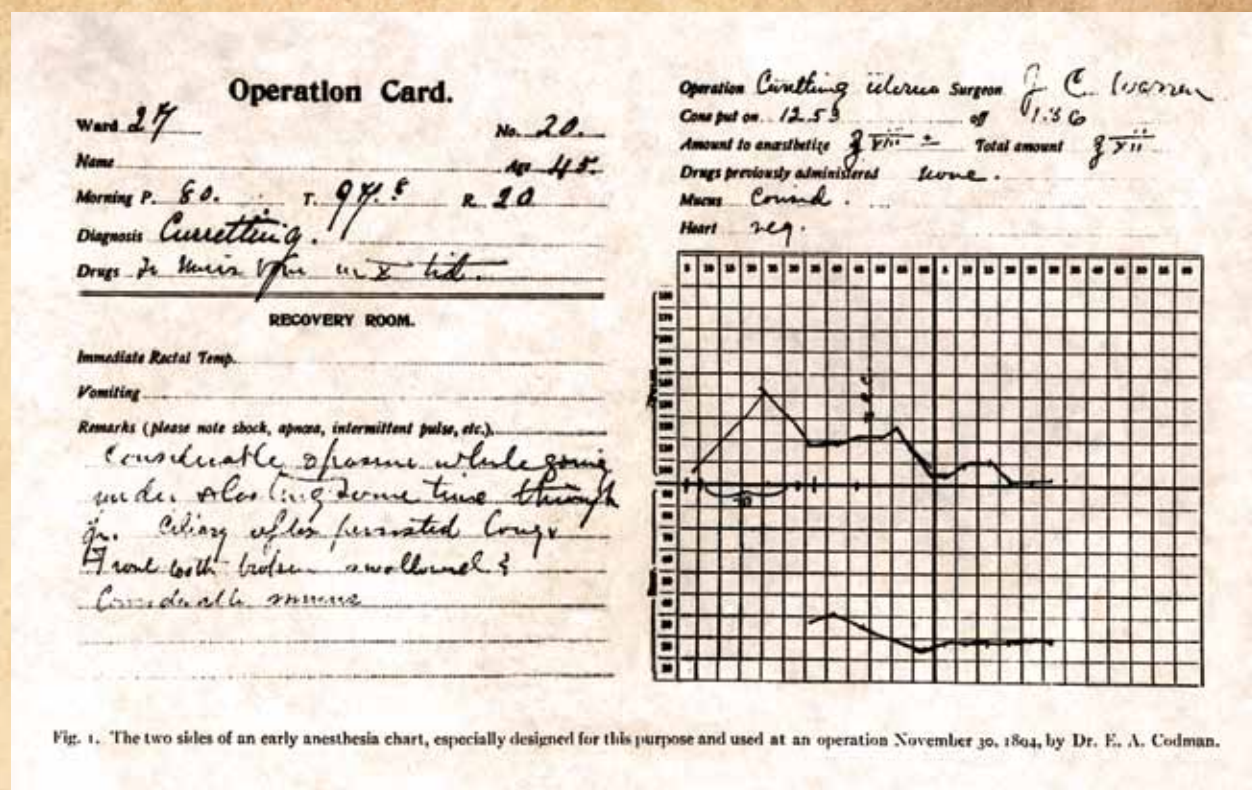 Operation Card.
Ward 27 No. 20.
Name Age 45.
Morning P. 80. T. 97.8 R. 20
Diagnosis Curretting.
Drugs
RECOVERY ROOM.
Immediate Rectal Temp.
Vomiting
Remarks (please note shock, apnœa, intermittent pulse, etc.)
Considerable spasm while going
under & lasting some time through
Ciliary reflex persisted long
Front tooth broken swallowed &
Considerable mucus
Operation Curetting uterus Surgeon J. C. Warren
Cone put on 12.53 off 1.36
Amount to anæsthetize Total amount
Drugs previously administered none.
Mucus Consid.
Heart reg.
5 10 15 20 25 30 35 40 45 50 55 60 5 10 15 20 25 30 35 40 45 50 55 60
Fig. 1. The two sides of an early anesthesia chart, especially designed for this purpose and used at an operation November 30, 1894, by Dr. E. A. Codman.